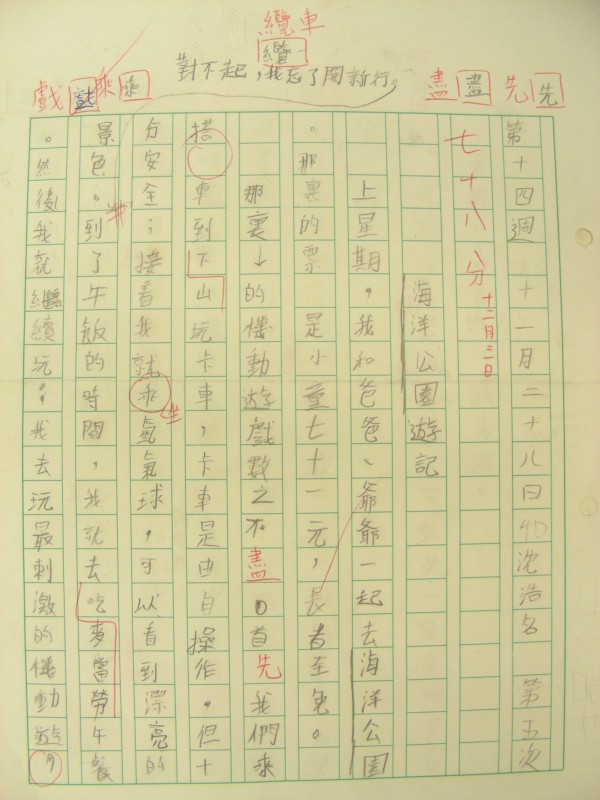 纜車
纜
對不起，我忘了開新行。
盡 盡 先 先
戲 戲 乘 乘
第十四週 十一月二十八日 4D 沈浩名 第五次
七十八分
海洋公園遊記
上星期，我和爸爸、爺爺一起去海洋公園
。那裏的票是小童七十一元，長者至免。
那裏的機動遊戲數之不盡。首先我們來
搭 車到下山玩卡車，卡車是由自操作。但十
分安全；接着我就乘氣氣球，可以看到漂亮的
坐
景色。到了午飯的時間，我就去吃麥當勞午餐
。然後我就繼續玩；我去玩最刺激的機動遊